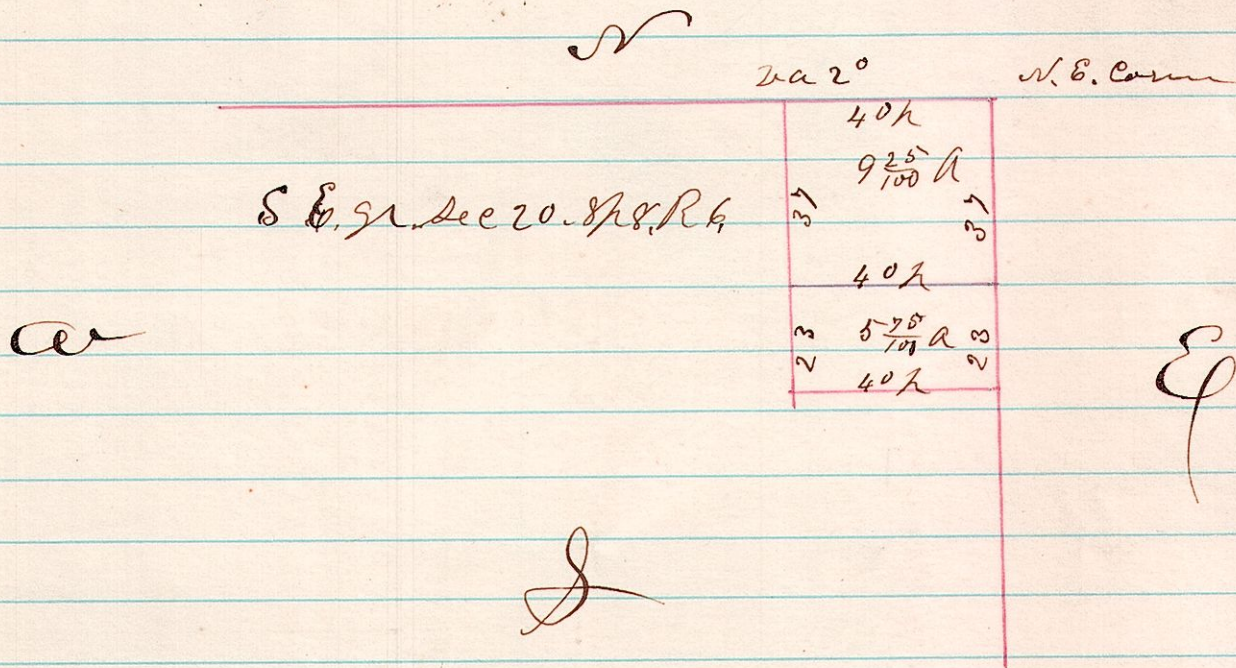 N
va 2° N.E. Corn
40 p
9 25/100 A
S E. qr. Sec 20. Tp 8, R 6,
37 37
40 p
W
23 5 75/100 A 23
E
40 p
S